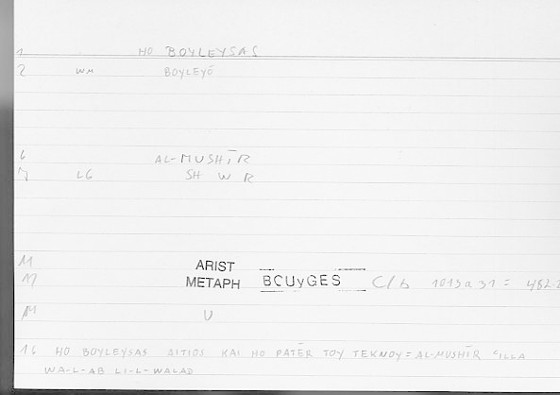 1 HO BOYLEYSAS
2 WM BOYLEYŌ
6 AL-MUSHĪR
7 LG SH W R
11 ARIST
METAPH BCUyGES C/b 1013a31 = 482.2
U
16 HO BOYLEYSAS AITIOS KAI HO PATĒR TOY TEKNOY = AL-MUSHĪR ʿILLA
WA-L-AB LI-L-WALAD